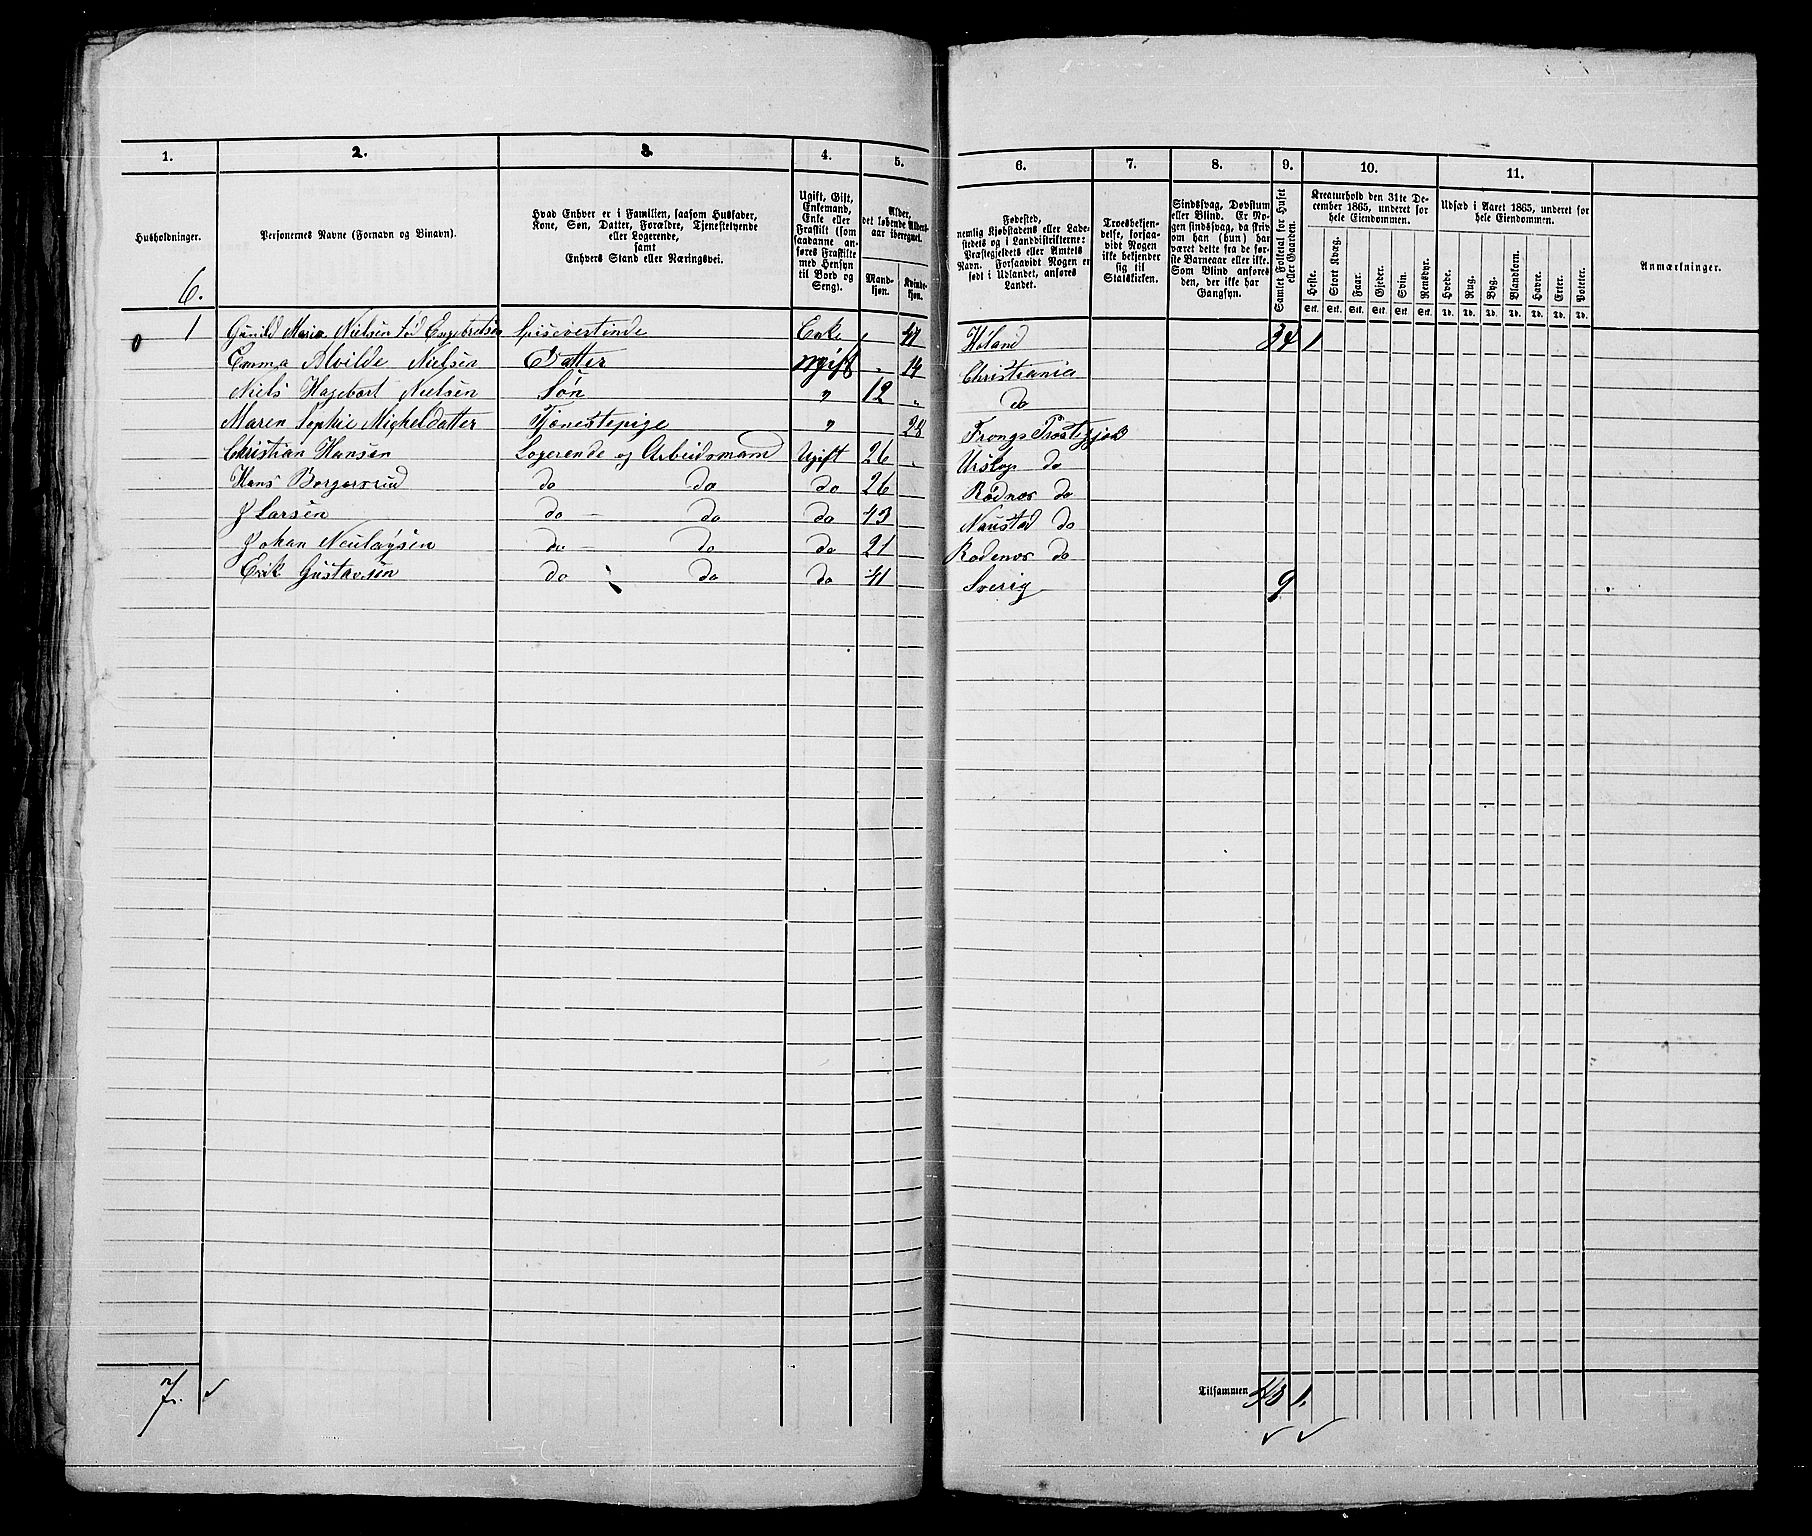 1. 2. 3. 4. 5. 6. 7. 8. 9. 10. 11.
Husholdninger.
Personernes Navne (Fornavn og Binavn).
Hvad Enhver er i Familien, saasom Husfader,
Kone, Søn, Datter, Forældre, Tjenestetyende
eller Logerende,
samt
Enhvers Stand eller Næringsvei.
Ugift, Gift,
Enkemand,
Enke eller
Fraskilt (som
saadanne an-
føres Fraskilte
med Hensyn
til Bord og
Seng).
Alder,
det løbende Alders-
aar iberegnet.
Mand-
kjøn.
Kvinde-
kjøn.
Fødested,
nemlig Kjøbstadens eller Lade-
stedets og i Landdistrikterne:
Præstegjeldets eller Amtets
Navn. Forsaavidt Nogen er
født i Udlandet, anføres
Landet.
Troesbekjen-
delse, forsaa-
vidt Nogen
ikke bekjender
sig til
Statskirken.
Sindssvag, Døvstum
eller Blind. Er No-
gen sindssvag, da skriv
om han (hun) har
været dette fra de før-
ste Barneaar eller ikke.
Som Blind anføres
den, der ikke har
Gangsyn.
Samlet Folketal for Huset
eller Gaarden.
Kreaturhold den 31te De-
cember 1865, underet for
hele Eiendommen.
Heste. Stort Kvæg. Faar. Gjeder. Svin. Rensdyr.
Stk. Stk. Stk. Stk. Stk. Stk.
Udsæd i Aaret 1865, underet for
hele Eiendommen.
Hvede. Rug. Byg. Blandkorn. Havre. Erter. Poteter.
Td. Td. Td. Td. Td. Td. Td.
Anmærkninger.
6.
0 1 Gunild Maria Nielsen fød Engebretsen Spisevertinde Enke " 47 Høland 34 1
Emma Alvilde Nielsen Datter Ugift " 14 Christiania
Niels Hagebart Nielsen Søn " 12 " do
Maren Sophie Micheldatter Tjenestepige " 28 Frongs Præstegjeld
Christian Hansen Logerende og Arbeidsmand Ugift 26 " Urskog do
Hans Borgersrud do do do 26 Rødnæs do
J Larsen do – do do 43 Naustad do
Johan Neulaysen do – do do 21 Rodenæs do
Erik Gustavsen do do do 41 Sverig 9
7. ✓
Tilsammen 43 1.
✓ ✓